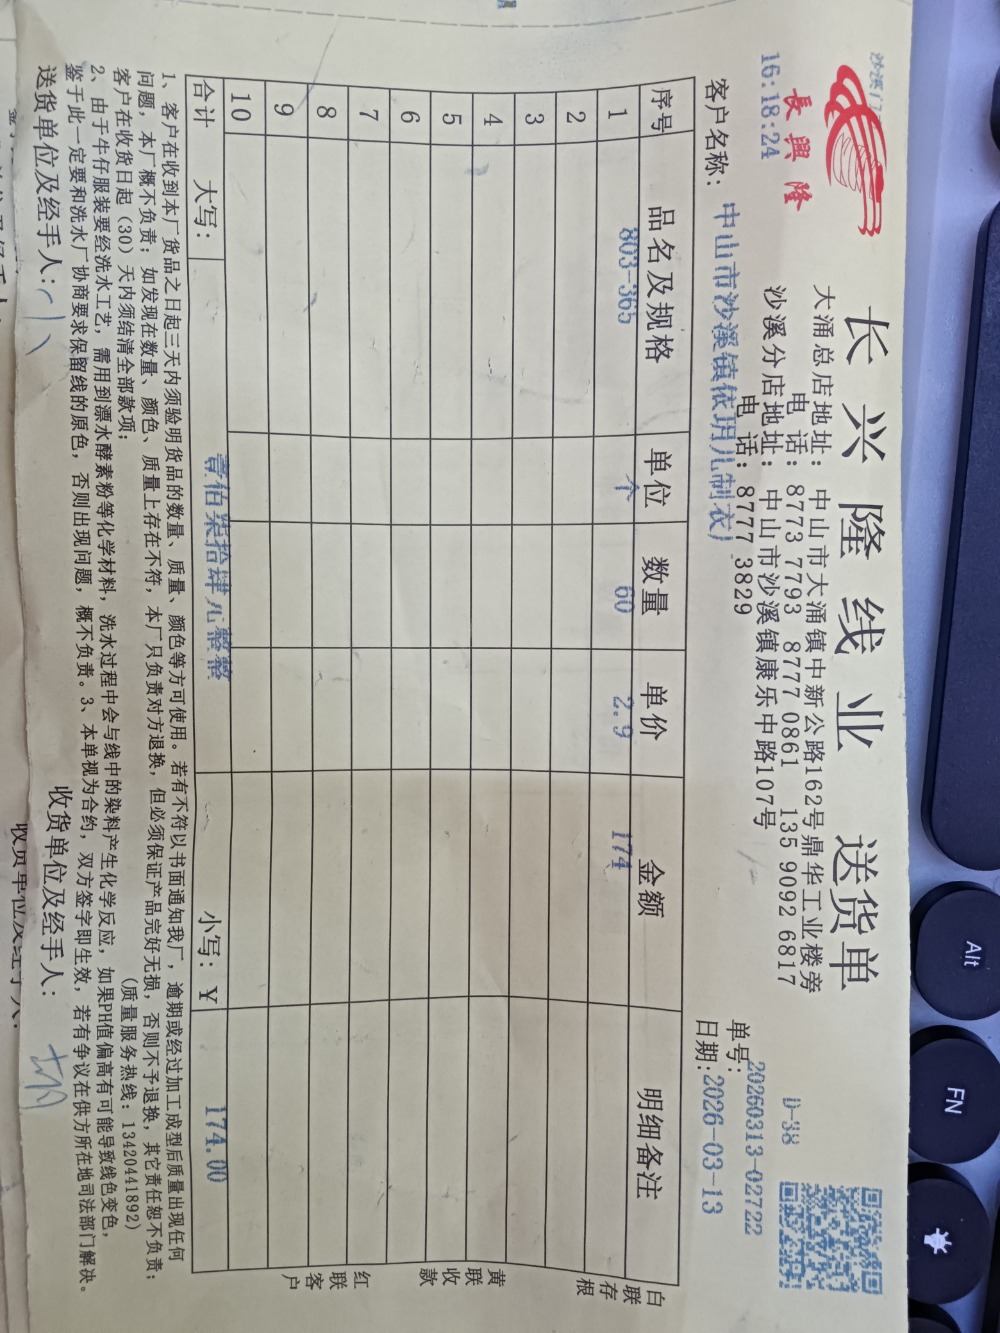 沙溪门
16:18:24
長興隆
长兴隆线业 送货单
大涌总店地址: 中山市大涌镇中新公路162号鼎华工业楼旁
电 话: 8773 7793 8777 0861 135 9092 6817
沙溪分店地址: 中山市沙溪镇康乐中路107号
电 话: 8777 3829
D-38
单号: 20260313-02722
客户名称: 中山市沙溪镇依玥儿制衣厂
日期: 2026-03-13
序号 品名及规格 单位 数量 单价 金额 明细备注
1 803-365 个 60 2.9 174
2
3
4
5
6
7
8
9
10
合计 大写: 壹佰柒拾肆元整整 小写: ¥ 174.00
白联存根
黄联收款
红联客户
1、客户在收到本厂货品之日起三天内须验明货品的数量、质量、颜色等方可使用。若有不符以书面通知我厂，逾期或经过加工成型后质量出现任何
问题，本厂概不负责；如发现在数量、颜色、质量上存在不符，本厂只负责对方退换，但必须保证产品完好无损，否则不予退换，其它责任恕不负责；
客户在收货日起（30）天内须结清全部款项； (质量服务热线: 13420441892)
2、由于牛仔服装要经洗水工艺，需用到漂水酵素粉等化学材料，洗水过程中会与线中的染料产生化学反应，如果PH值偏高有可能导致线色变色，
鉴于此一定要和洗水厂协商要求保留线的原色，否则出现问题，概不负责。3、本单视为合约，双方签字即生效，若有争议在供方所在地司法部门解决。
送货单位及经手人: 收货单位及经手人:
Alt
FN